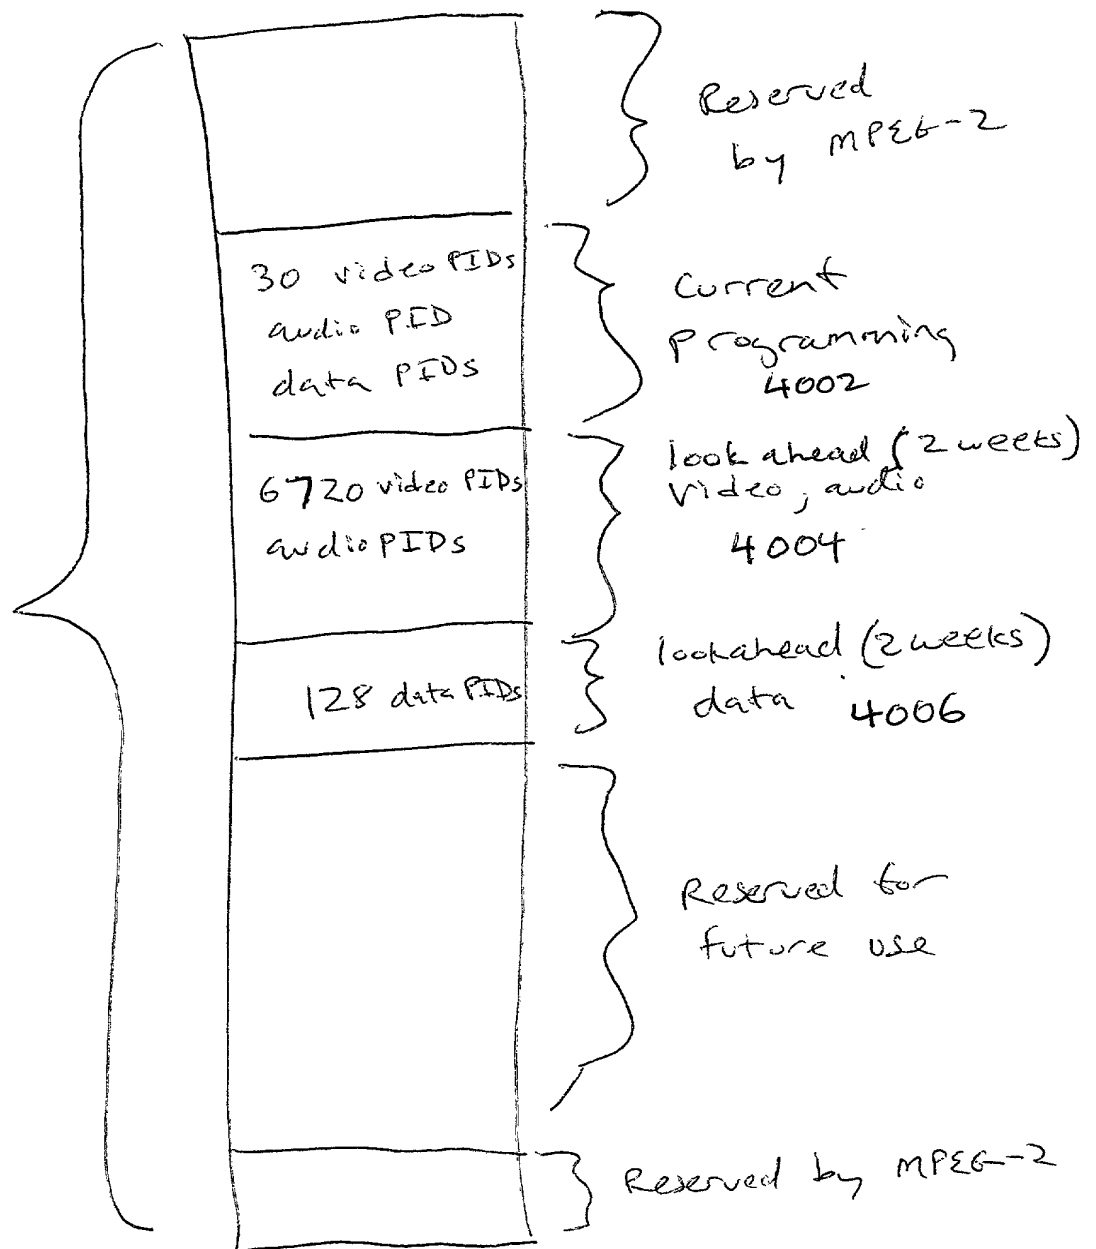 Reserved
by MPEG-2
30 video PIDs
audio PID
data PIDs
Current
programming
4002
6720 video PIDs
audio PIDs
look ahead (2 weeks)
video, audio
4004
128 data PIDs
lookahead (2 weeks)
data 4006
Reserved for
future use
Reserved by MPEG-2